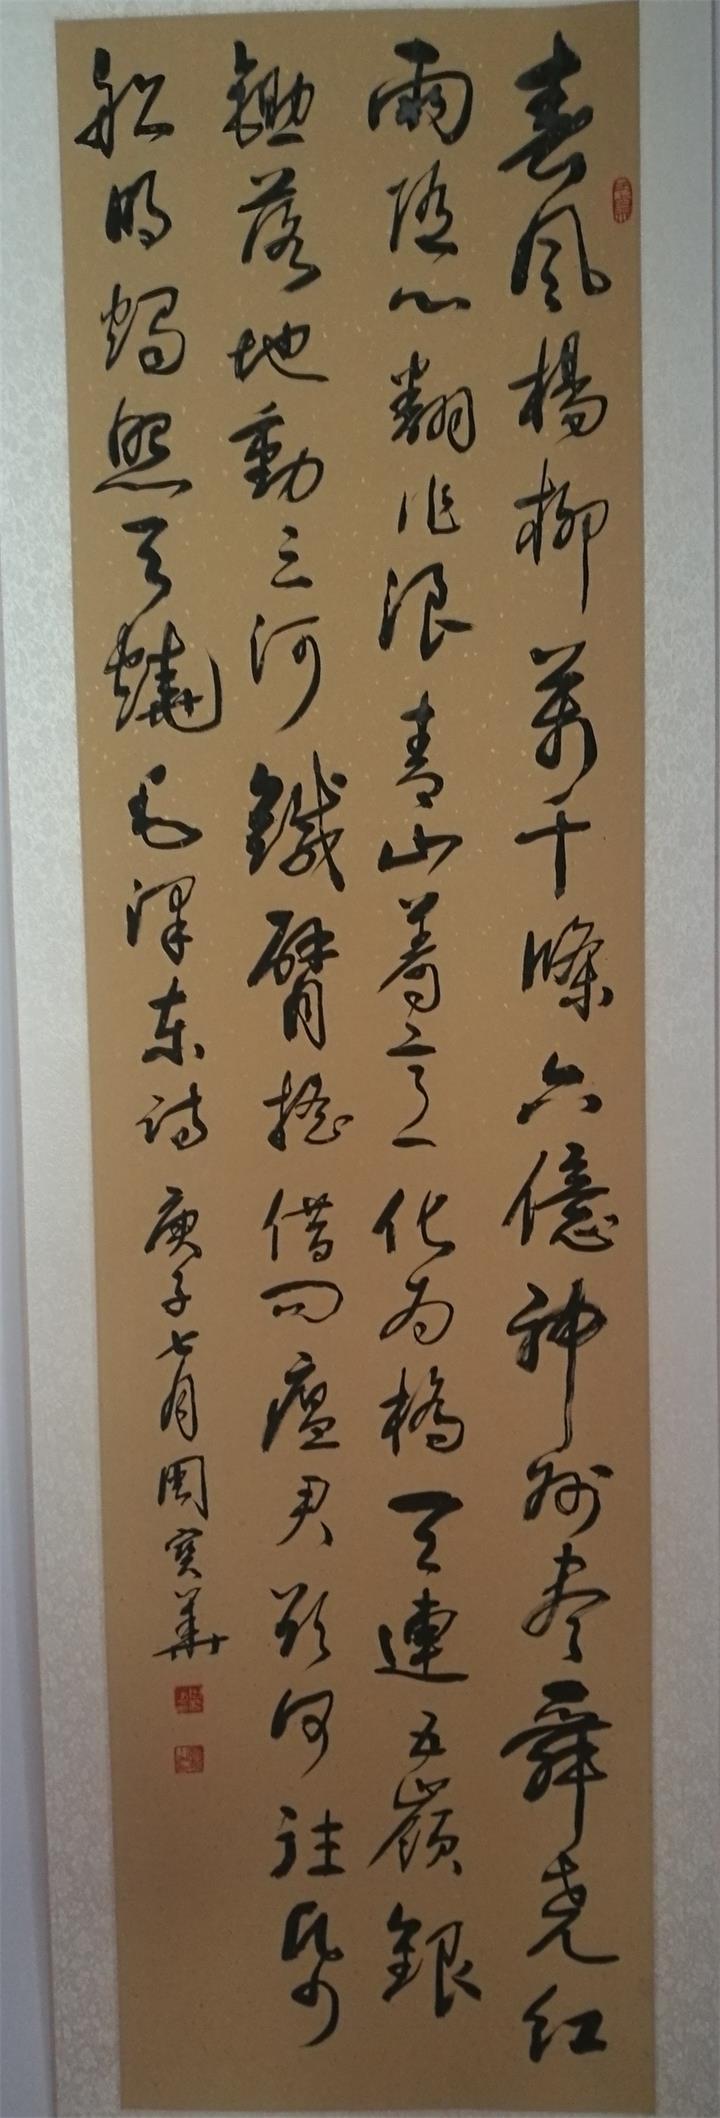 春風楊柳萬千條六億神州盡舜堯紅
雨隨心翻作浪青山著意化為橋天連五嶺銀
鋤落地動三河鐵臂搖借問瘟君欲何往紙
船明燭照天燒毛澤東詩庚子七月周寶華